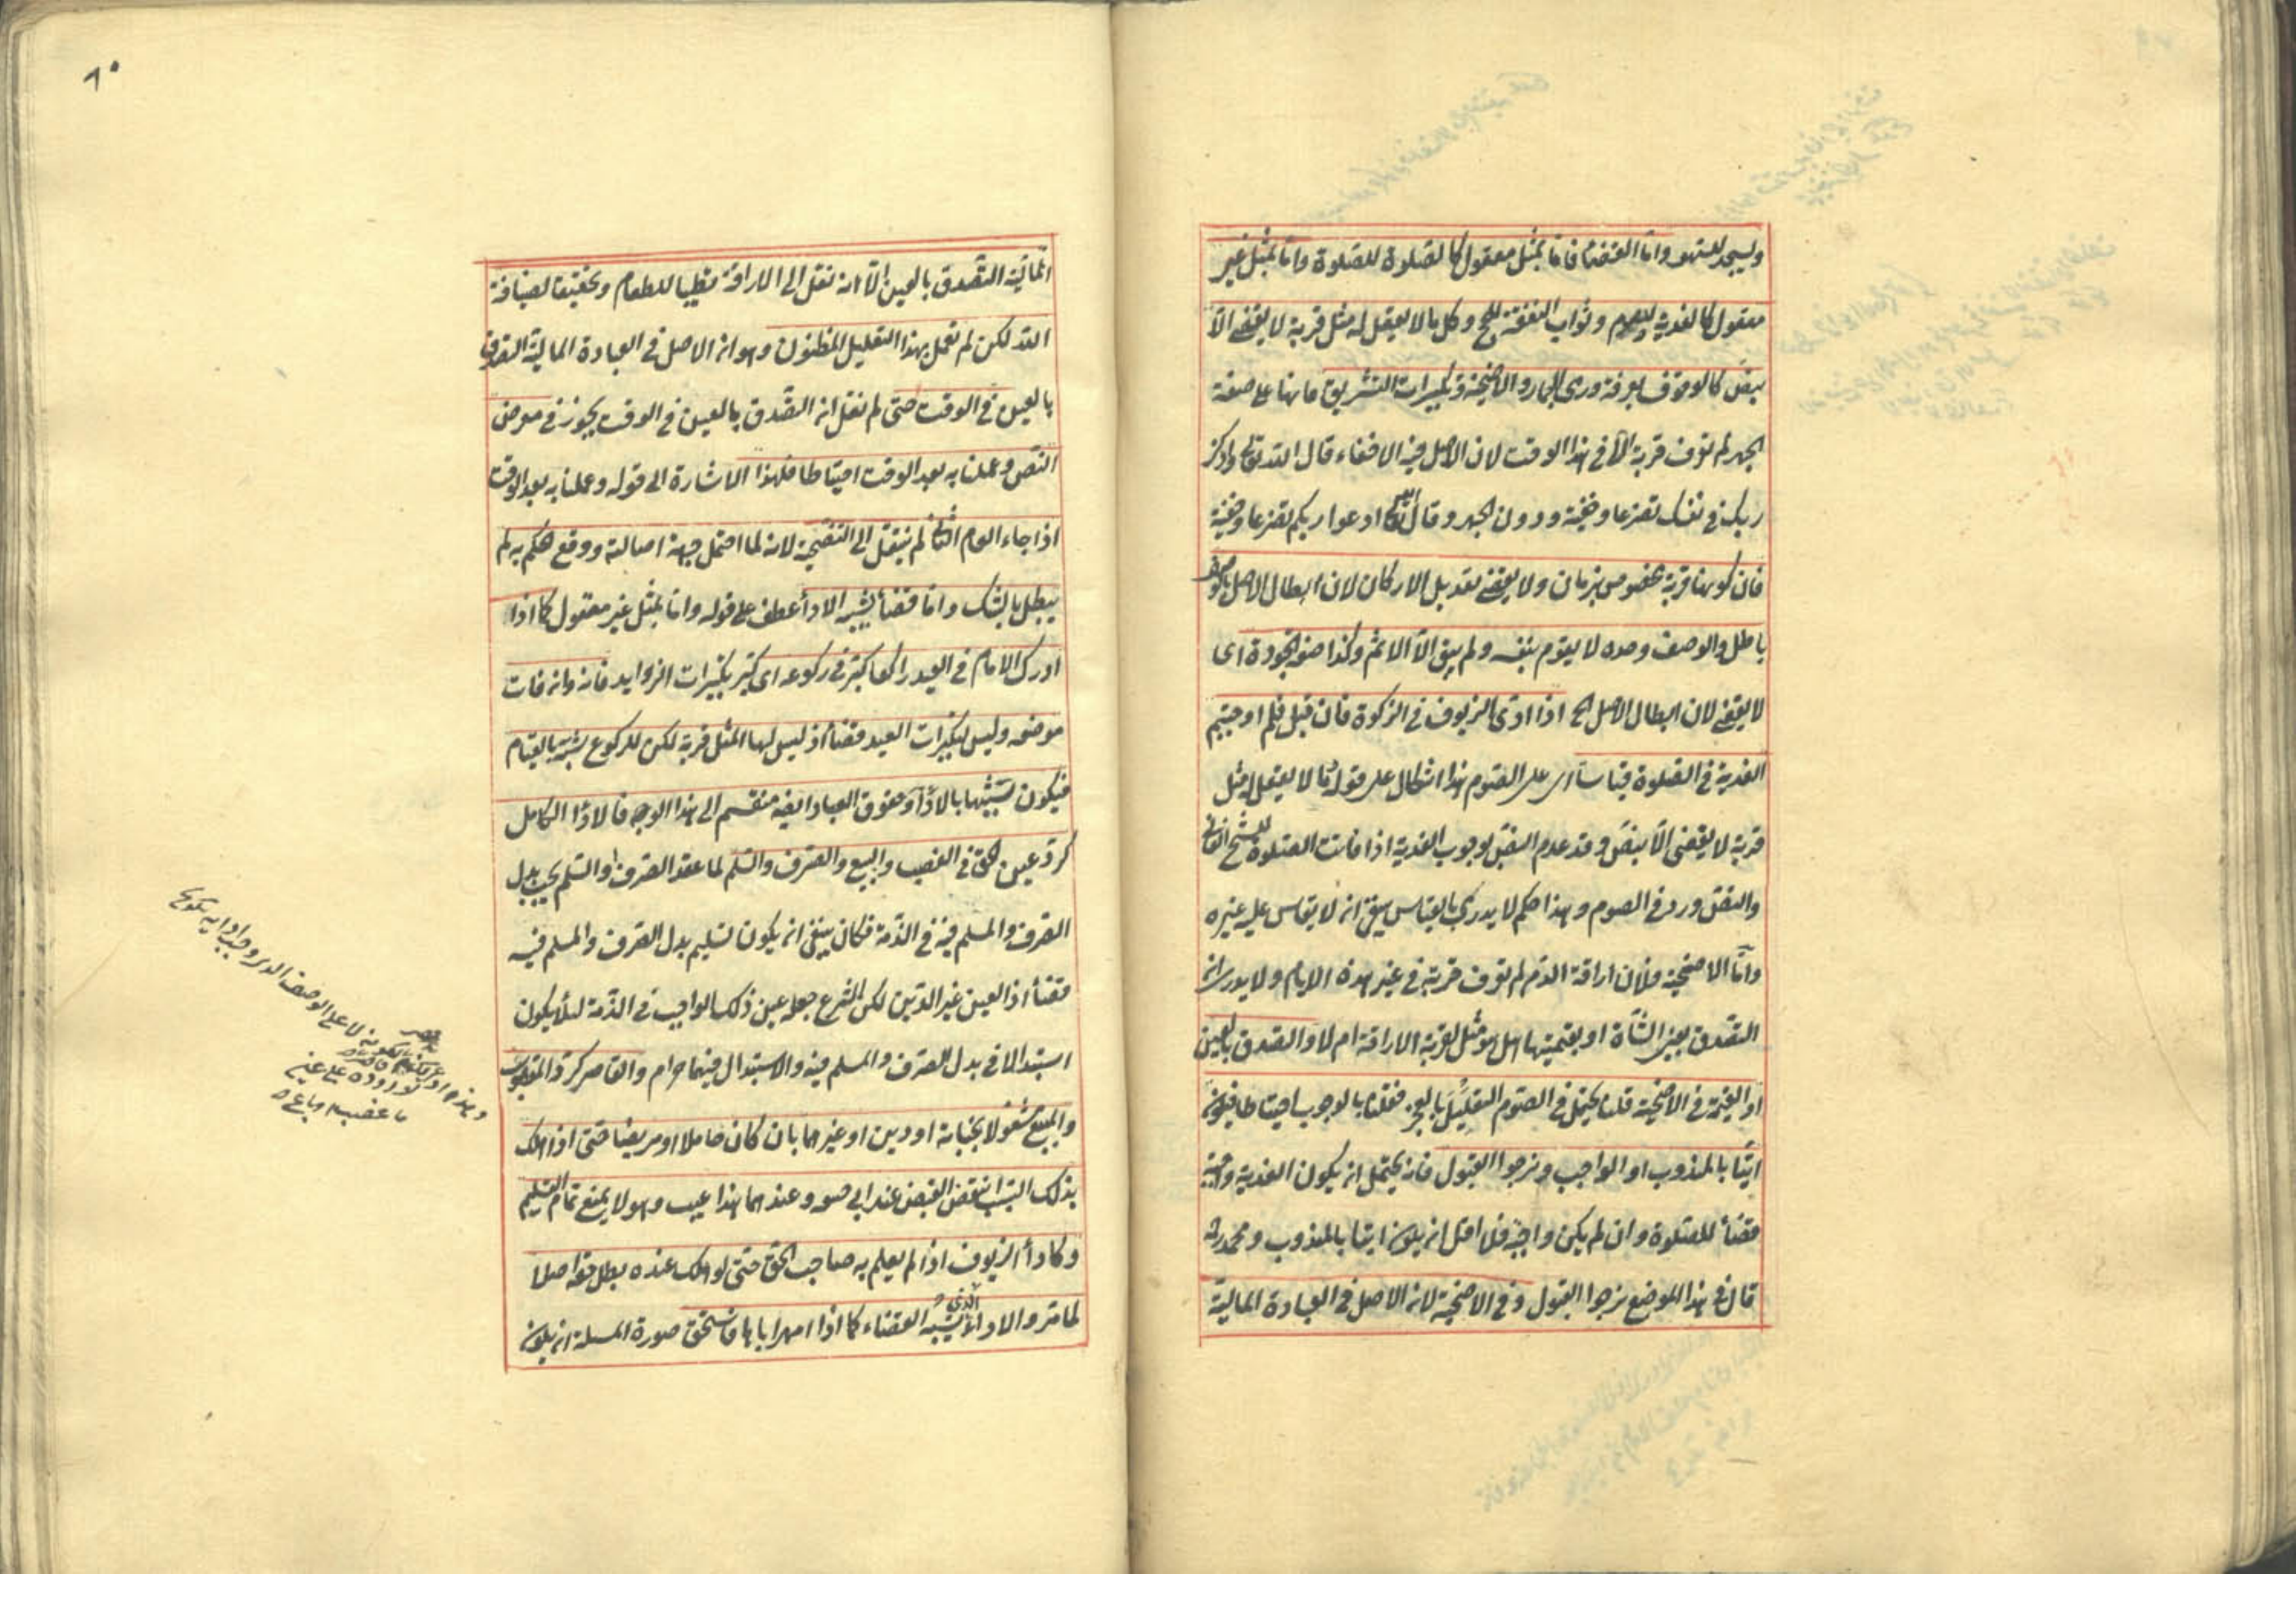 ويسجد للسهو واما القضاء فاما بمثل معقول كالصلوة للصلوة واما بمثل غير
معقول كالفدية للصوم وثواب النفقة للحج وكل ما لا يعقل له مثل قربة لا يقضى الا
بنص كالوقوف بعرفة ورمى الجمار والاضحية وتكبيرات التشريق فانها على صفة
الجهر لم تعرف قربة الا فى هذا الوقت لان الاصل فيه الاخفاء قال الله تعالى واذكر
ربك فى نفسك تضرعا وخيفة ودون الجهر وقال الله تعالى ادعوا ربكم تضرعا وخفية
فان كونها قربة مخصوص بزمان ولا يقضى تعديل الاركان لان ابطال الاصل بالوصف
باطل والوصف وحده لا يقوم بنفسه ولم يبق الا الاثم وكذا صفة الجودة اى
لا يقضى لان ابطال الاصل الخ اذا ادى الزيوف فى الزكوة فان قيل فلم اوجبتم
الفدية فى الصلوة قياسا اى على الصوم هذا اشكال على قوله فما لا يعقل له مثل
قربة لا يقضى الا بنص وقد عدم النص بوجوب الفدية اذا فاتت الصلوة للشيخ الفانى
والنص ورد فى الصوم وهذا حكم لا يدرك بالقياس فينبغى انه لا يقاس عليه غيره
واما الاضحية فلان اراقة الدم لم تعرف قربة فى غير هذه الايام ولا يدرى ان
التصدق بعين الشاة او بقيمتها هل هو مثل لقربة الاراقة ام لا والتصدق بالعين
او القيمة فى الاضحية قلنا يحتمل فى الصوم التعليل بالعجز فقلنا بالوجوب احتياطا فيكون
آتيا بالمندوب او الواجب ونرجوا القبول فانه يحتمل ان يكون الفدية واجبة
قضاء للصلوة وان لم يكن واجبة فلا اقل انه يكون آتيا بالمندوب ومحمد رحمه
قال فى هذا الموضع نرجوا القبول وفى الاضحية لانه الاصل فى العبادة المالية
٦٠
المالية التصدق بالعين الا انه نقل الى الاراقة تطييبا للطعام وتحقيقا لضيافة
الله لكن لم نعمل بهذا التعليل المظنون وهو ان الاصل فى العبادة المالية التصدق
بالعين فى الوقت حتى لم نقل ان التصدق بالعين فى الوقت يجوز فى معرض
النص وعملنا به بعد الوقت احتياطا فلهذا الاشارة الى قوله وعملنا به بعد الوقت
اذا جاء العام الثانى لم ينتقل الى التضحية لانه لما احتمل جهة اصالته ووقع الحكم به لم
يبطل بالشك واما قضاء يشبه الاداء عطف على قوله واما بمثل غير معقول كما اذا
ادرك الامام فى العيد راكعا كبر فى ركوعه اى كبر تكبيرات الزوايد فانه وان فات
موضعه وليس لتكبيرات العيد قضاء اذ ليس لها المثل قربة لكن للركوع شبه بالقيام
فيكون شبيها بالاداء وحقوق العباد ايضا منقسم الى هذا الوجه فالاداء الكامل
كرد عين الحق فى الغصب والبيع والصرف والسلم لما عقد الصرف او السلم يجب بدل
الصرف والمسلم فيه فى الذمة فكان ينبغى انه يكون تسليم بدل الصرف والمسلم فيه
قضاء اذ العين غير الدين لكن الشرع جعله عين ذلك الواجب فى الذمة لئلا يكون
استبدالا فى بدل الصرف والمسلم فيه والاستبدال فيهما حرام والقاصر كرد المغصوب
والمبيع مشغولا بجناية او دين او غيرهما بان كان حاملا او مريضا حتى اذا هلك
بذلك السبب انتقض القبض عند ابى حنيفة وعندهما هذا عيب وهو لا يمنع تمام التسليم
وكاداء الزيوف اذا لم يعلم به صاحب الحق حتى لو هلك عنده بطل حقه اصلا
لما مر والاداء الذى يشبه القضاء كما اذا امهر اباها فاستحق صورة المسئلة انه يكون
لا على الوصف الذى وجب اداؤه
على عين
ما غصب او باع